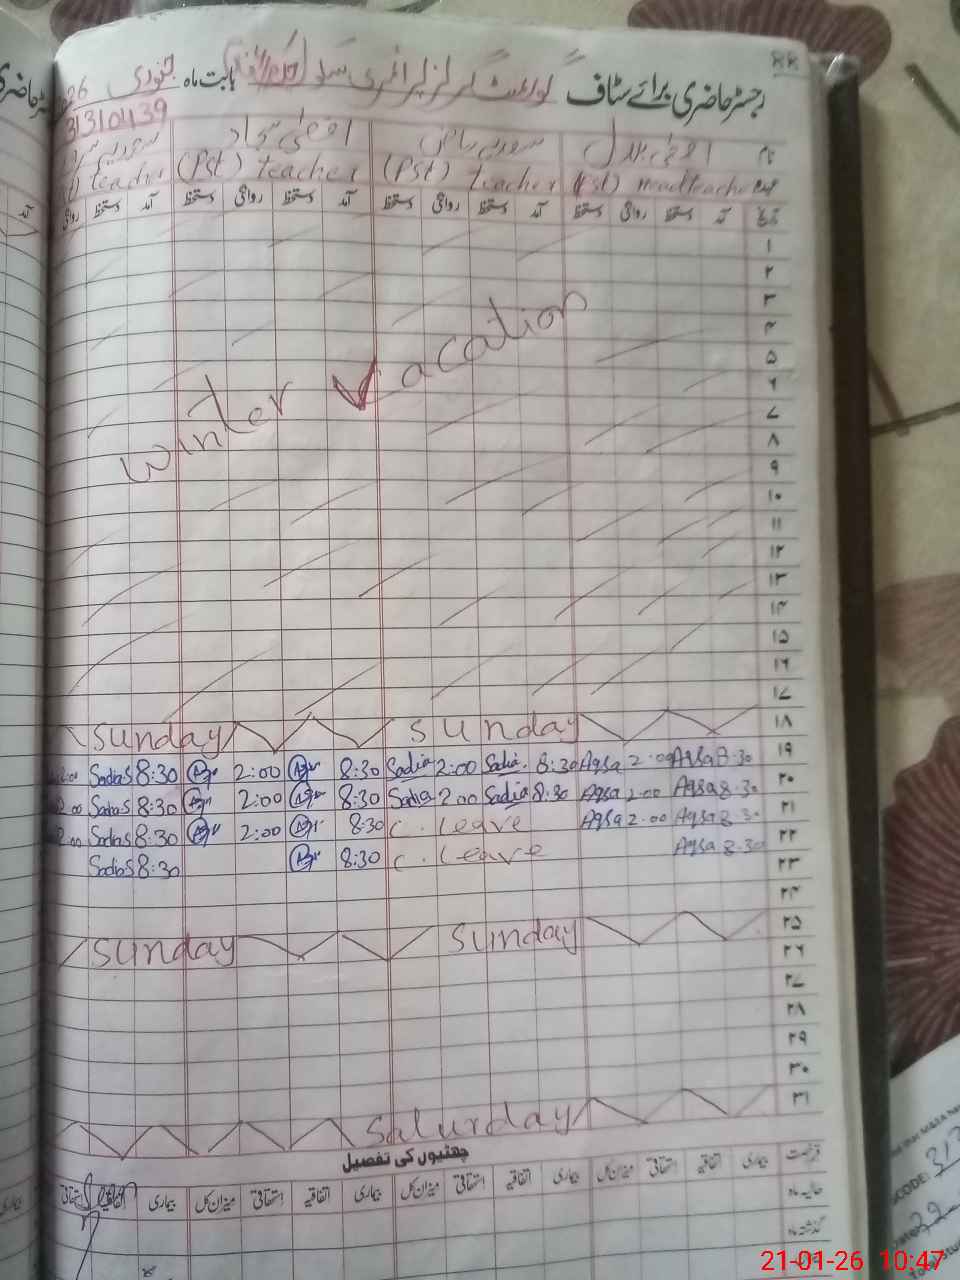 ۴۴
رجسٹر حاضری برائے سٹاف گورنمنٹ گرلز پرائمری سکول بابت ماہ جنوری 26
31310439
نام اقصیٰ بلال سعدیہ ریاض اقصیٰ سجاد سعدیہ
عہدہ (Pst) headteacher (Pst) teacher (Pst) teacher teacher
تاریخ آمد دستخط روانگی دستخط آمد دستخط روانگی دستخط آمد دستخط روانگی دستخط آمد دستخط روانگی
۱
۲
۳
۴
۵
۶
۷
۸
۹
۱۰
۱۱
۱۲
۱۳
۱۴
۱۵
۱۶
۱۷
winter vacation
۱۸ sunday sunday
۱۹ 2:00 Sadia S 8:30 2:00 8:30 Sadia 2:00 Sadia 8:30 Aqsa 2:00 Aqsa 8:30
۲۰ 2:00 Sadia S 8:30 2:00 8:30 Sadia 2:00 Sadia 8:30 Aqsa 2:00 Aqsa 8:30
۲۱ 2:00 Sadia S 8:30 2:00 8:30 C. leave Aqsa 2:00 Aqsa 8:30
۲۲ Sadia S 8:30 8:30 C. leave Aqsa 8:30
۲۳
۲۴
۲۵ sunday sunday
۲۶
۲۷
۲۸
۲۹
۳۰
۳۱ Saturday
چھٹیوں کی تفصیل
رخصت بیماری اتفاقیہ استحقاقی میزان کل بیماری اتفاقیہ استحقاقی میزان کل بیماری اتفاقیہ استحقاقی میزان کل بیماری اتفاقیہ استحقاقی
حالیہ ماہ
گذشتہ ماہ
313
22
21-01-26 10:47